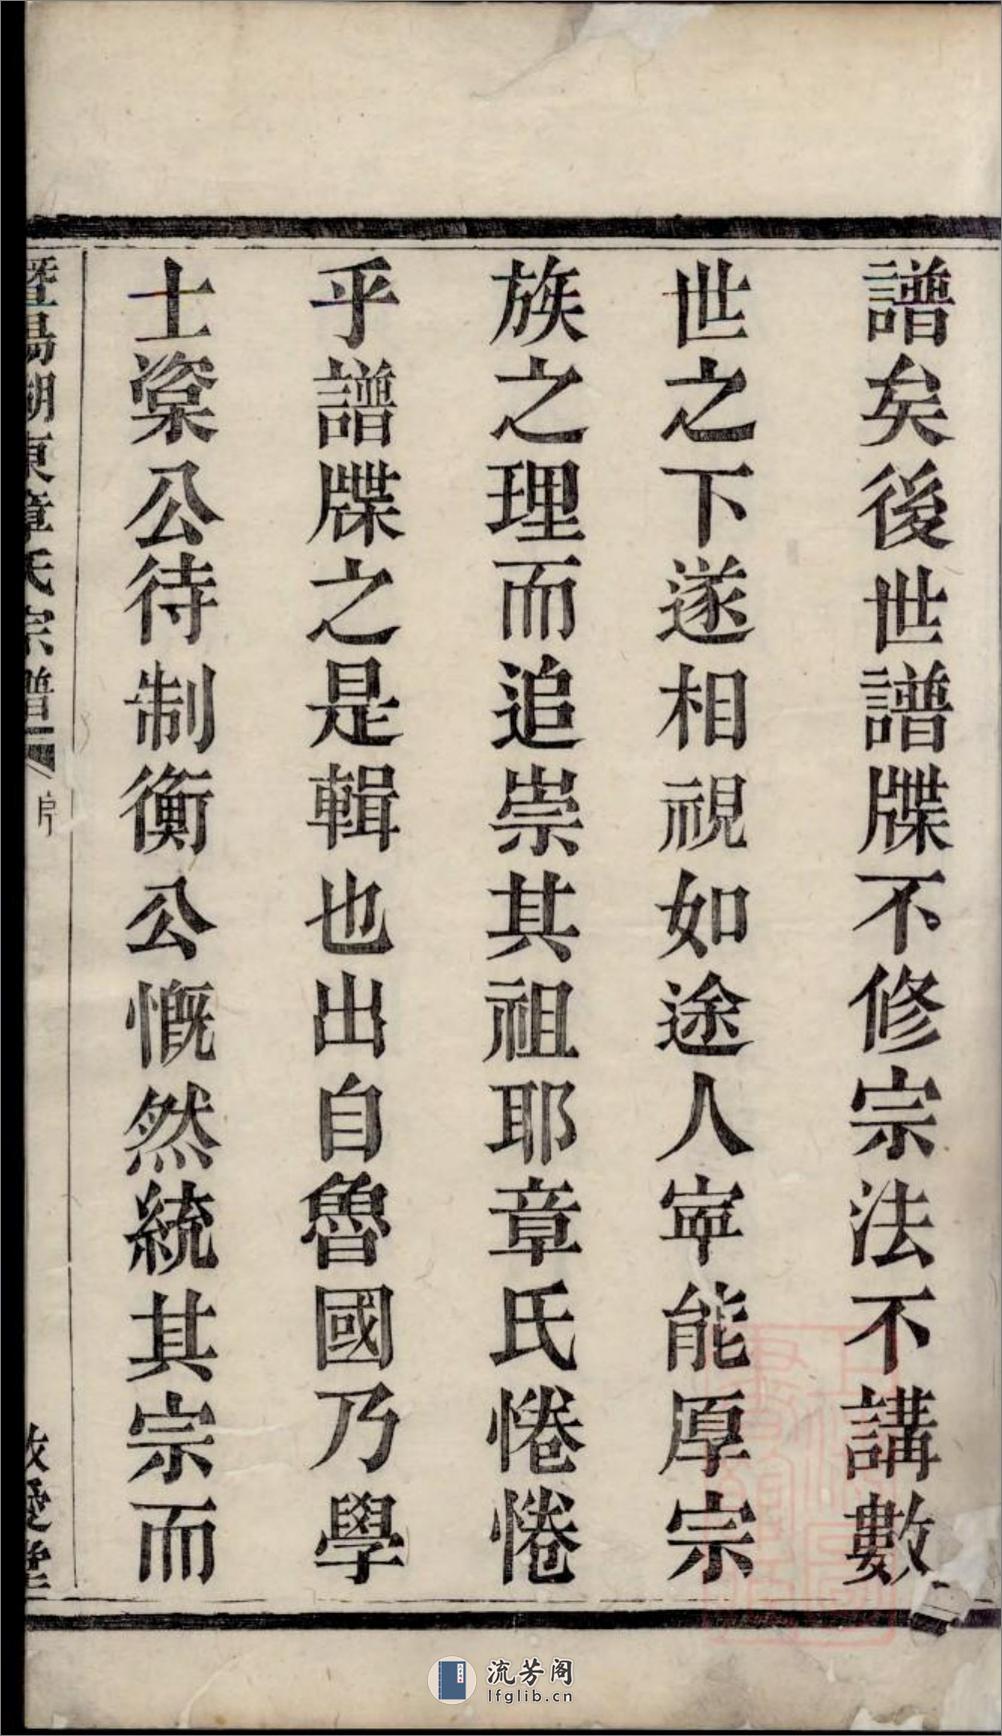 譜矣後世譜牒不修宗法不講數
世之下遂相視如途人寧能厚宗
族之理而追崇其祖耶章氏惓惓
乎譜牒之是輯也出自魯國乃學
士粢公待制衡公慨然統其宗而
暨陽湖東章氏宗譜
敬愛堂
流芳阁
lfglib.cn